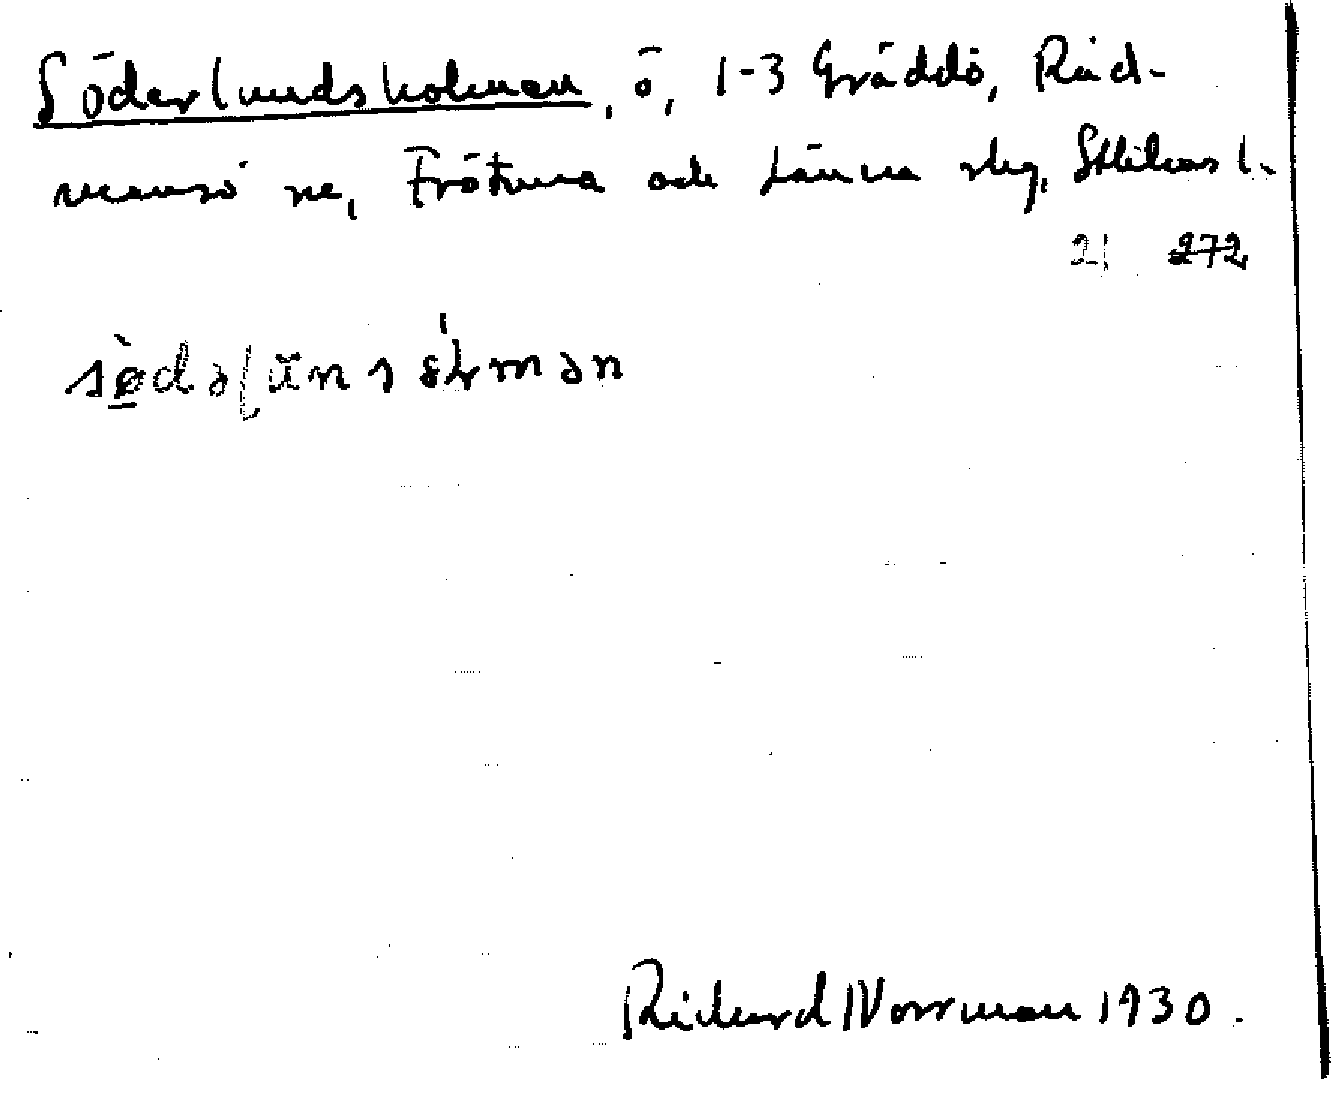 Söderlundsholmen, ö, 1-3 Gräddö, Råd-
mansö sn, Frötuna och Länna skg, Sthlms l.
21 272
Richard Norrman 1930.